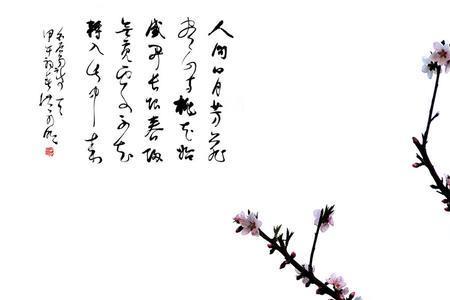 人间四月芳菲
尽山寺桃花始
盛开长恨春归
无觅处不知
转入此中来
白居易诗
甲午初春